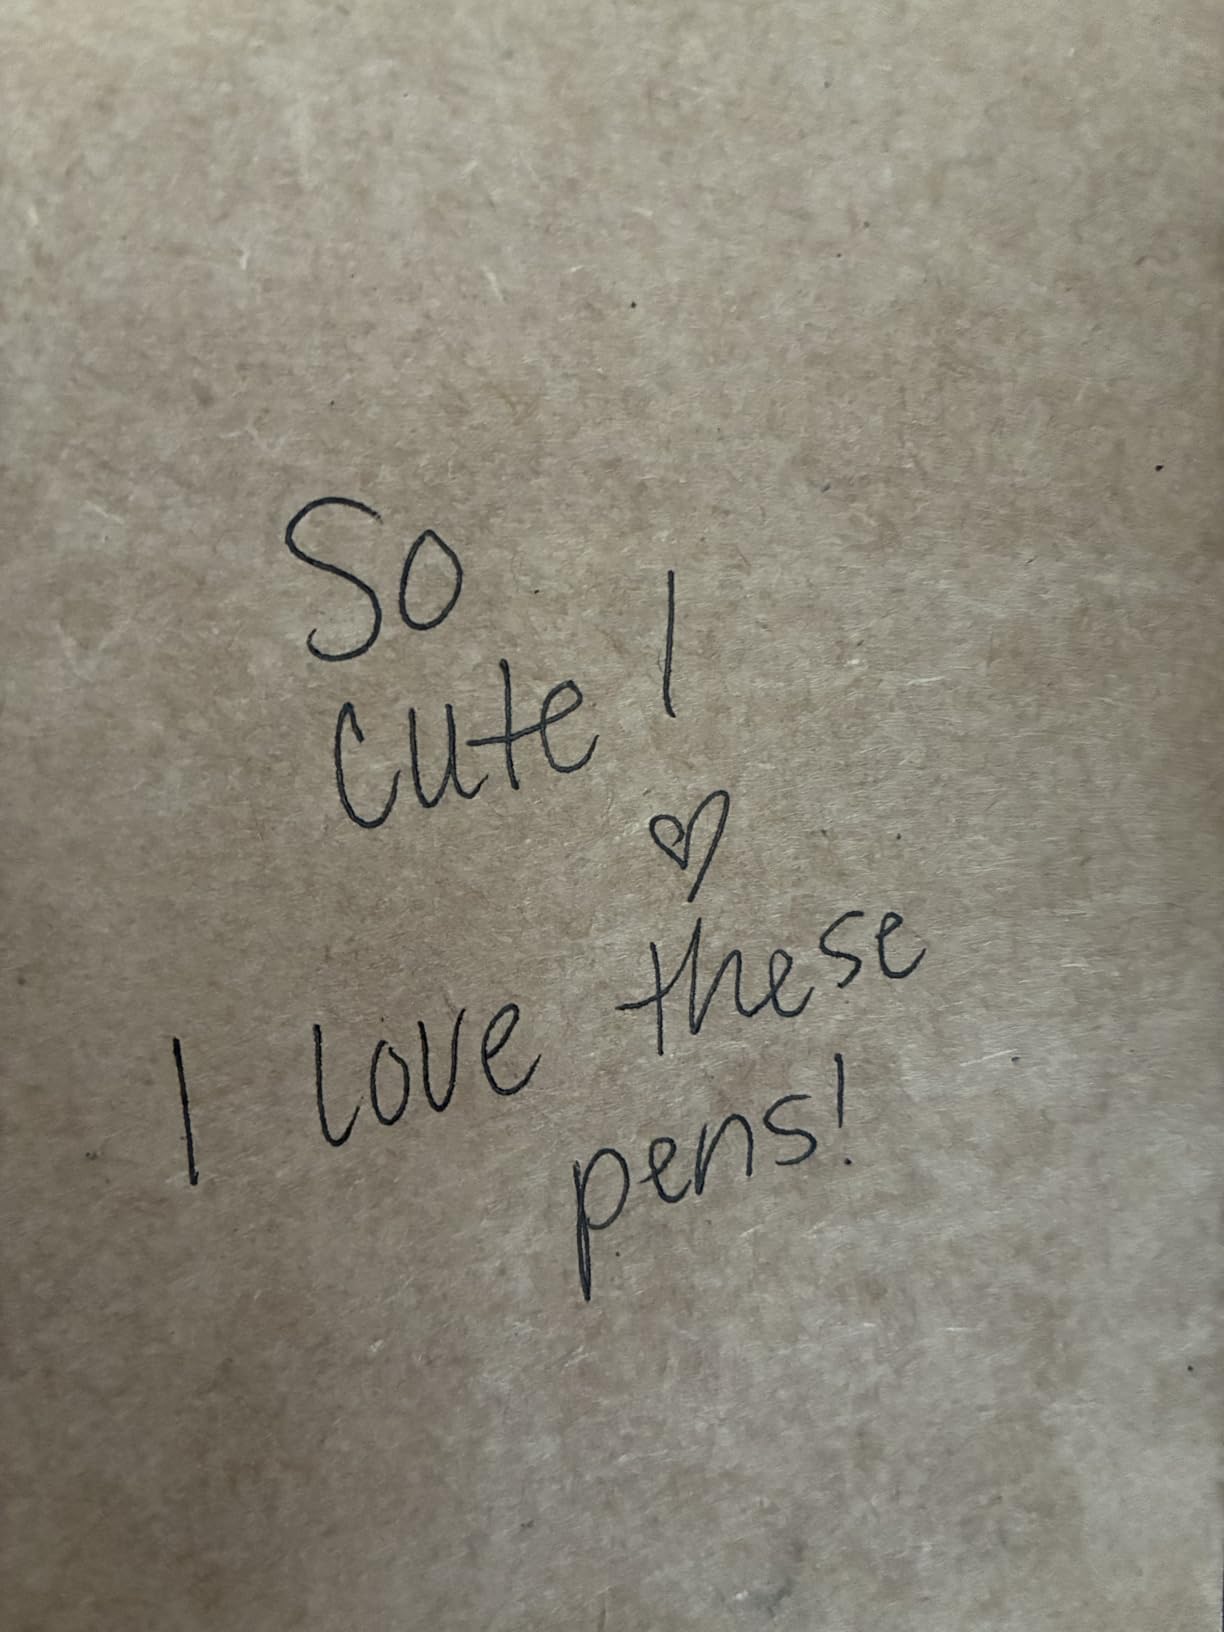 So
cute!
I love these
pens!